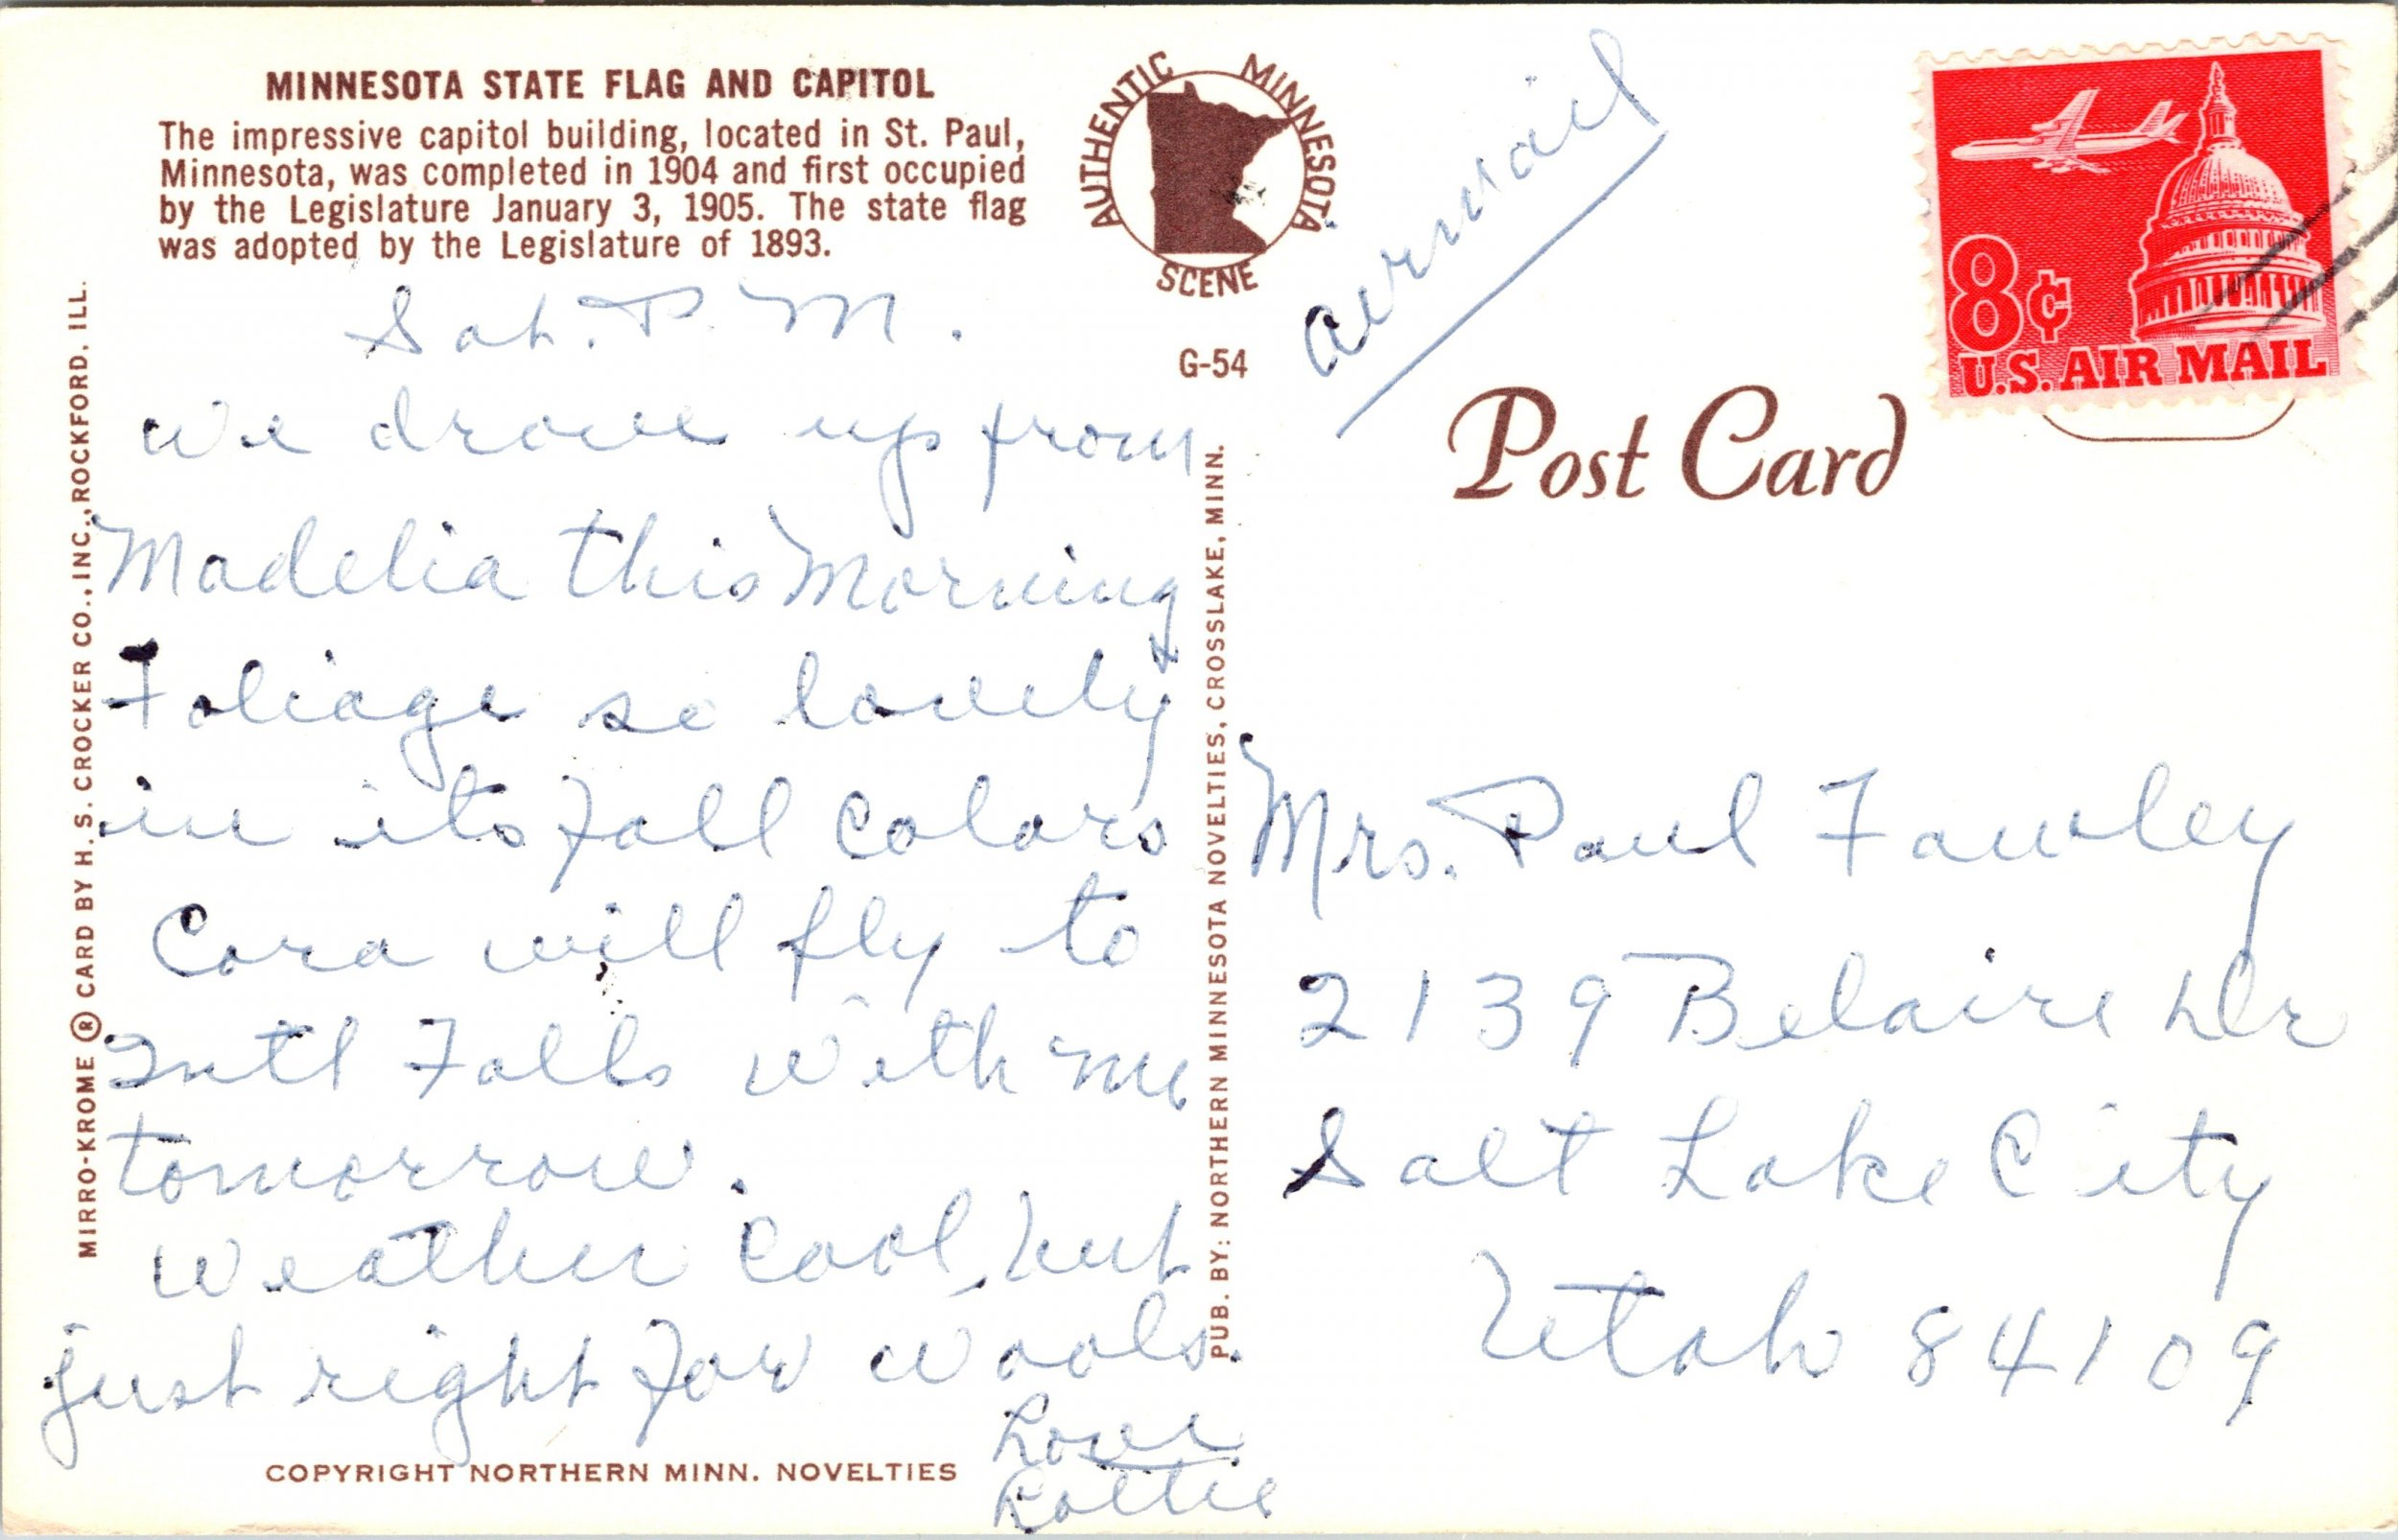 MINNESOTA STATE FLAG AND CAPITOL
The impressive capitol building, located in St. Paul,
Minnesota, was completed in 1904 and first occupied
by the Legislature January 3, 1905. The state flag
was adopted by the Legislature of 1893.
AUTHENTIC MINNESOTA
SCENE
G-54
Sat. P. M.
We drove up from
Madelia this Morning
Foliage so lovely
in its fall colors
Cora will fly to
Intl Falls with me
tomorrow.
Weather cool, but
just right for wools.
Love
Lottie
COPYRIGHT NORTHERN MINN. NOVELTIES
MIRRO-KROME ® CARD BY H. S. CROCKER CO., INC., ROCKFORD, ILL.
PUB. BY: NORTHERN MINNESOTA NOVELTIES, CROSSLAKE, MINN.
airmail
8¢
U.S. AIR MAIL
Post Card
Mrs. Paul Fawley
2139 Belaire Dr
Salt Lake City
Utah 84109